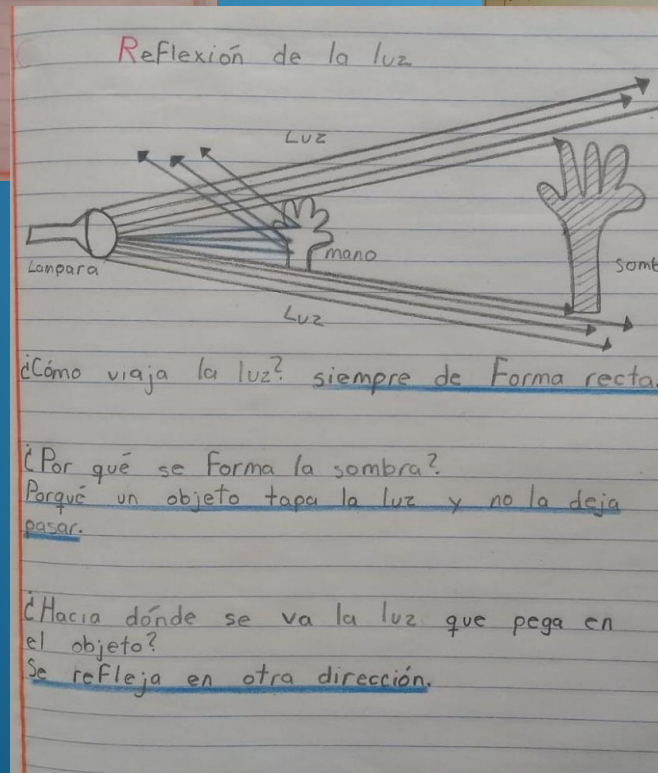 Reflexión de la luz
Luz
mano
Lampara
Luz
¿Cómo viaja la luz? siempre de Forma recta.
¿Por qué se Forma la sombra?
Porqué un objeto tapa la luz y no la deja
pasar.
¿Hacia dónde se va la luz que pega en
el objeto?
Se refleja en otra dirección.